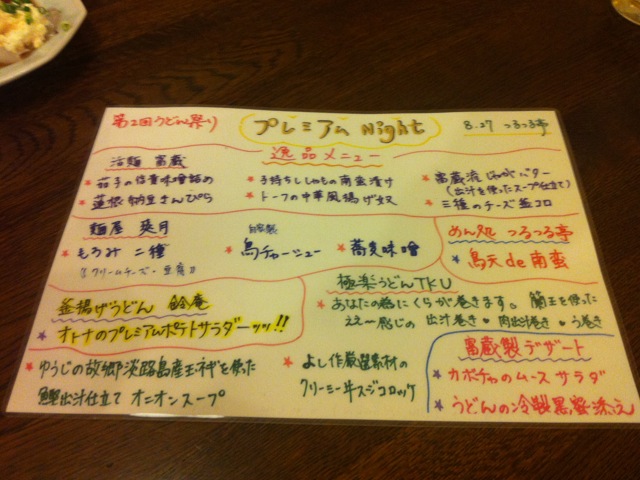 第2回うどん祭り
プレミアム Night
8.27 つるつる亭
逸品メニュー
活麺 富蔵
★ 茄子の信貴味噌詰め
★ 蓮根納豆きんぴら
★ 子持ちししゃもの南蛮漬け
★ トーフの中華風揚げ奴
★ 富蔵流じゃがバター
(出汁を使ったスープ仕立て)
★ 三種のチーズ 春コロ
麺屋 爽月
★ もろみ二種
(クリームチーズ・豆腐)
自家製
鳥チャーシュー
★ 蕎麦味噌
めん処 つるつる亭
★ 鳥天de南蛮
釜揚げうどん 鈴庵
★ オトナのプレミアムポテトサラダーッッ!!
極楽うどんTKU
★ あなたの為にくらが巻きます。蘭王を使った
ええ〜感じの 出汁巻き・肉出汁巻き・う巻き
★ ゆうじの故郷淡路島産玉ネギを使った
鰹出汁仕立て オニオンスープ
★ よし作厳選素材の
クリーミー牛スジコロッケ
富蔵製デザート
★ カボチャのムース サラダ
★ うどんの冷製黒蜜添え